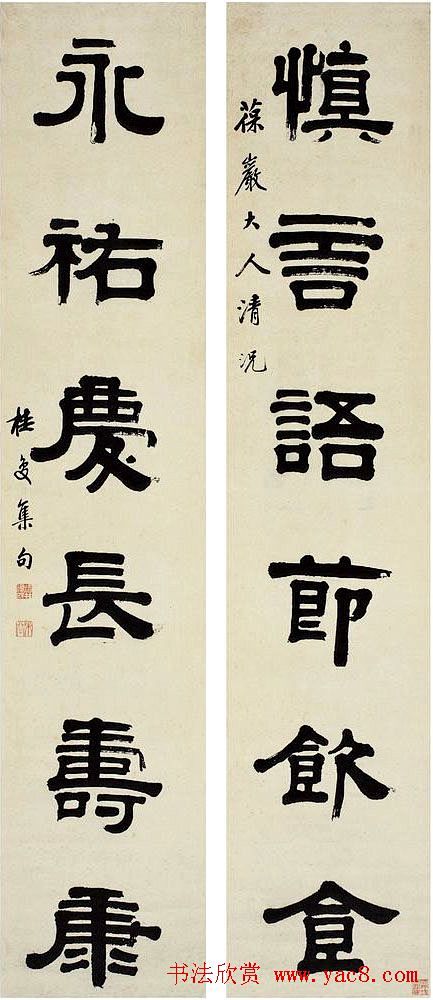 慎言語節飲食
葆巖大人清况
永祐慶長壽康
桂复集句
书法欣赏 www.yac8.com